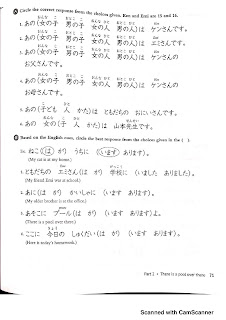 Circle the correct response from the choices given. Ken and Emi are 15 and 16.
1. あの (女の子 男の子 女の人 男の人) は ケンさんです。
2. あの (女の子 男の子 女の人 男の人) は エミさんです。
3. あの (女の子 男の子 女の人 男の人) は ケンさんの
お父さんです。
4. あの (女の子 男の子 女の人 男の人) は ケンさんの
お母さんです。
5. あの (子ども 人 かた) は ともだちの おにいさんです。
6. あの (女の子 人 かた) は 山本先生です。
Based on the English cues, circle the best response from the choices given in the ( ).
ねこ (は が) うちに (います あります)。
(My cat is at my home.)
1. ともだちの エミさん (は が) 学校に (いました ありました)。
(My friend Emi was at school.)
2. あに (は が) かいしゃに (います あります)。
(My older brother is at the office.)
3. あそこに プール (は が) (います あります) よ。
(There is a pool over there.)
4. ここに 今日の しゅくだい (は が) (います あります)。
(Here is today's homework.)
Part 2 • There is a pool over there 71
Scanned with CamScanner